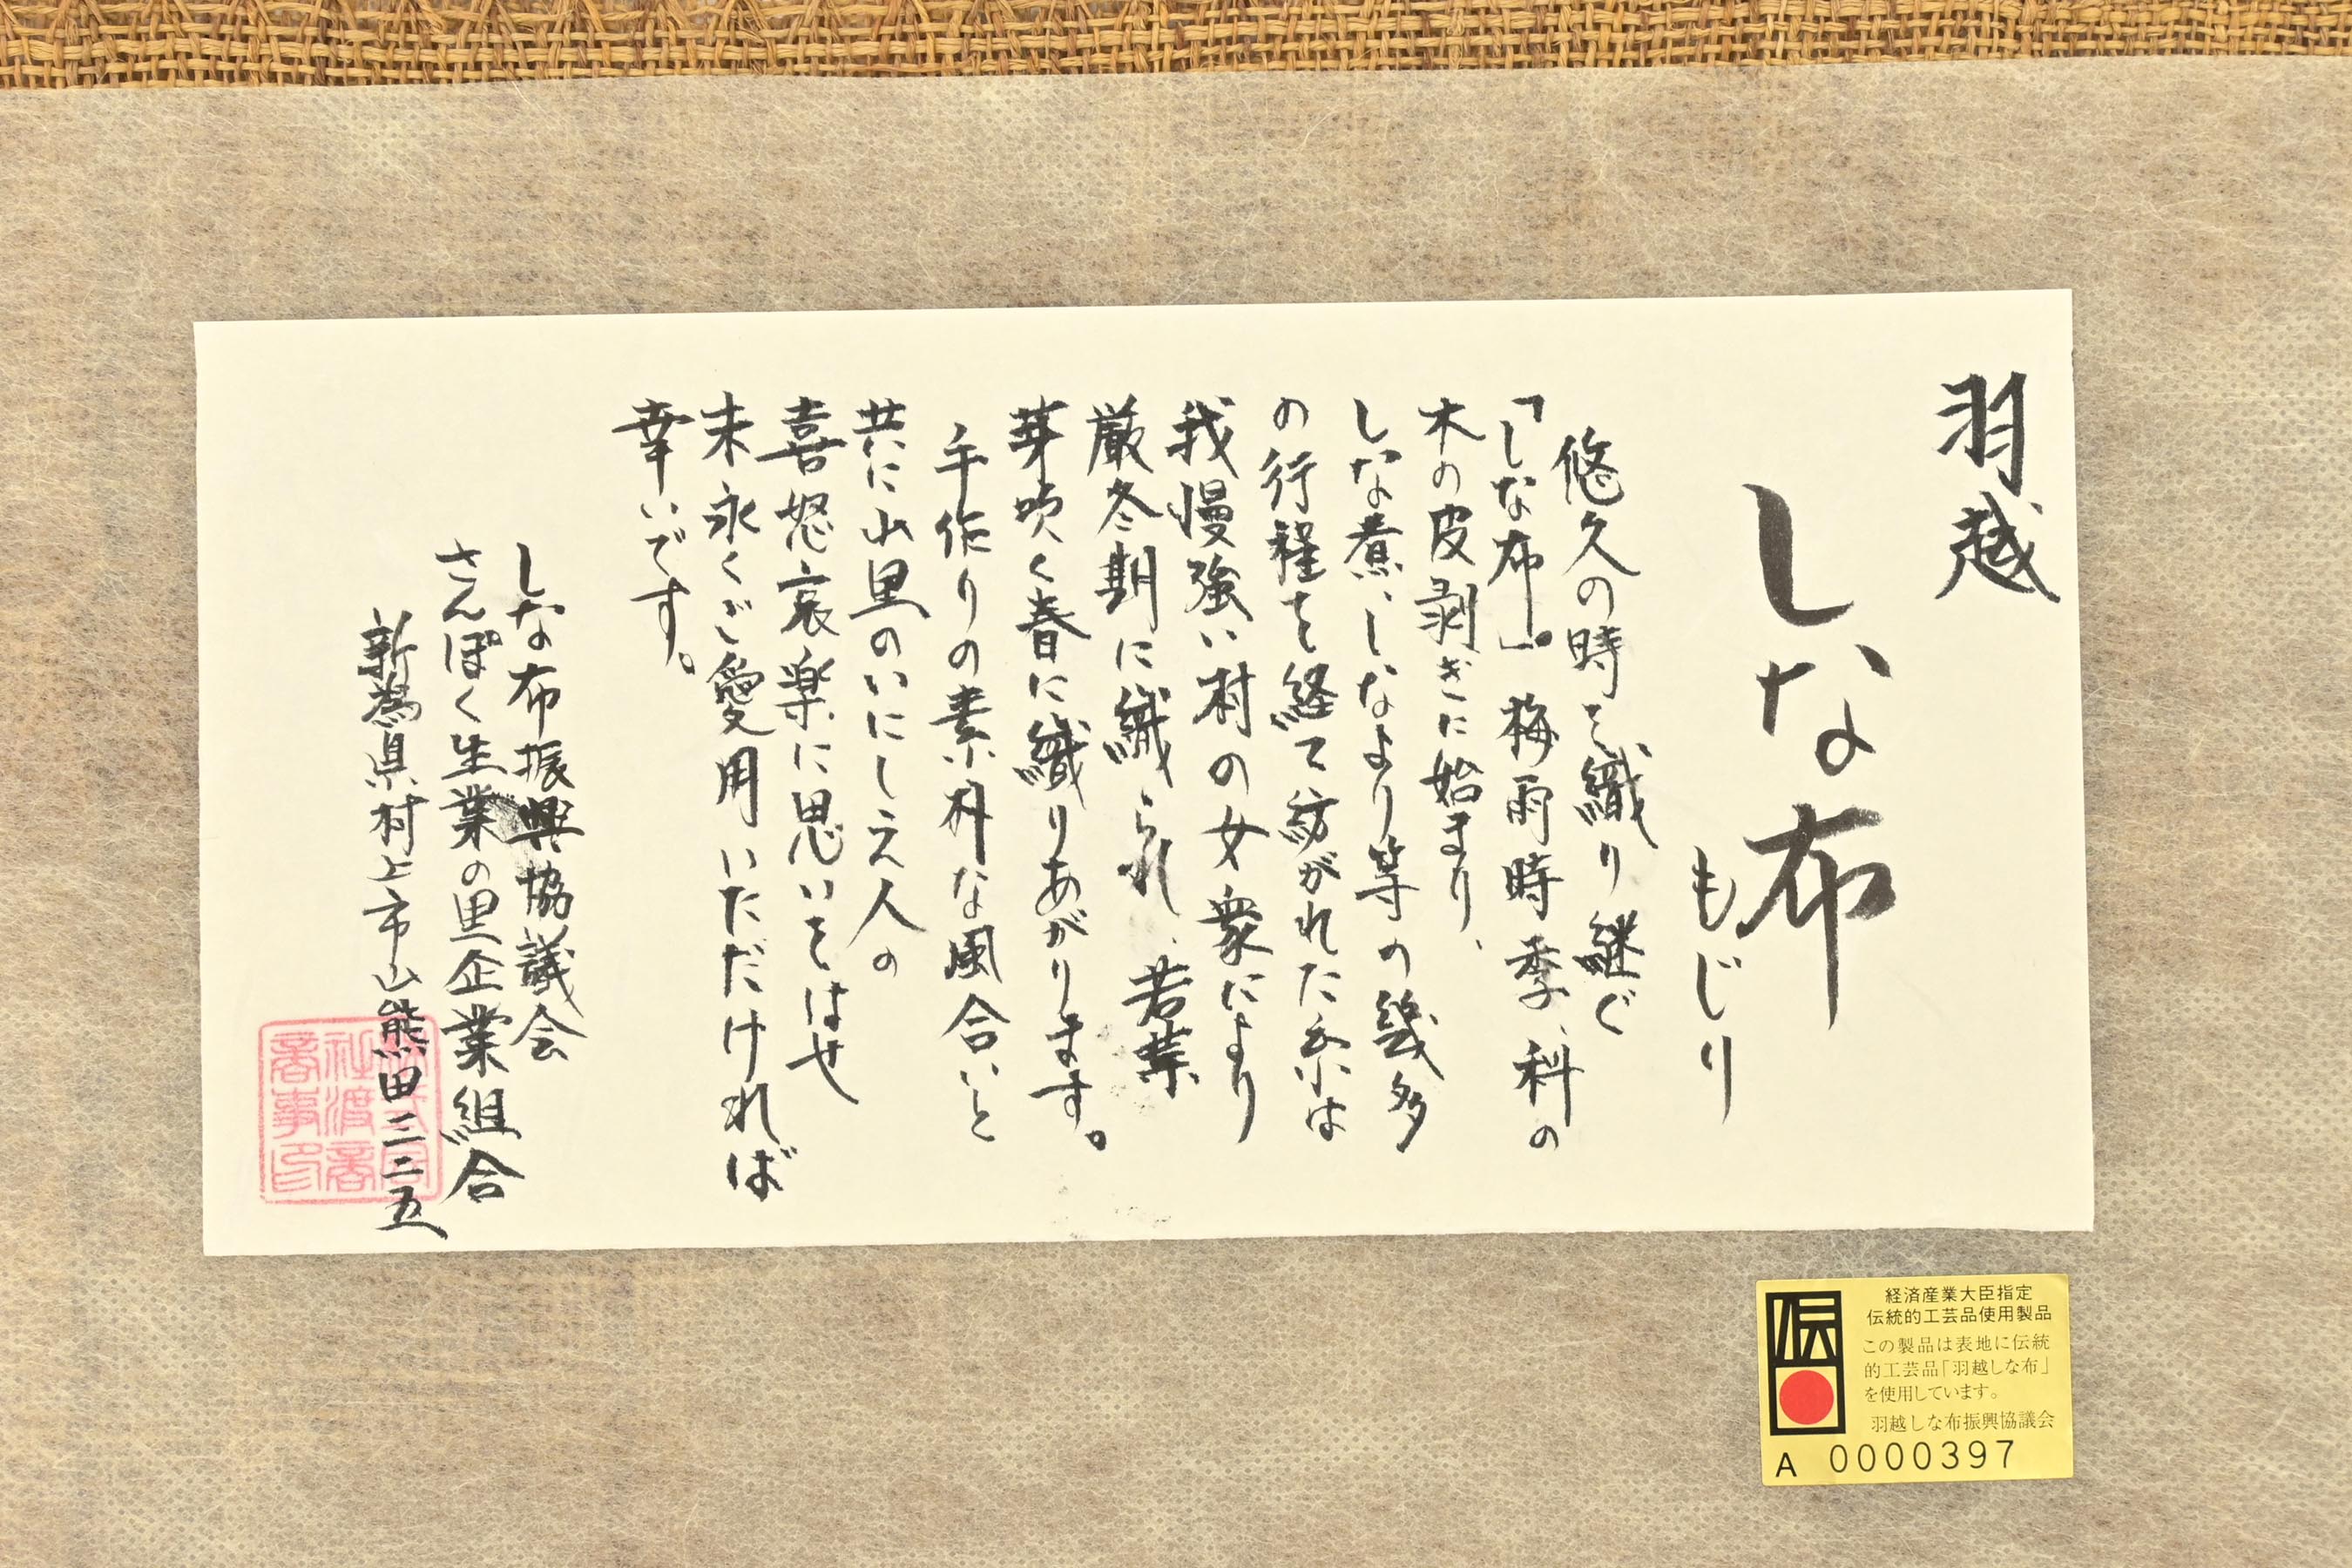 羽越
しな布
もじり
悠久の時を織り継ぐ
「しな布」。梅雨時季、科の
木の皮剥ぎに始まり、
しな煮、しなより等の幾多
の行程を経て紡がれた糸は
我慢強い村の女衆により
厳冬期に織られ、若葉
芽吹く春に織りあがります。
手作りの素朴な風合いと
共に山里のいにしえ人の
喜怒哀楽に思いをはせ
末永くご愛用いただければ
幸いです。
しな布振興協議会
さんぽく生業の里企業組合
新潟県村上市山熊田三二五
経済産業大臣指定
伝統的工芸品使用製品
この製品は表地に伝統
的工芸品「羽越しな布」
を使用しています。
羽越しな布振興協議会
A 0000397